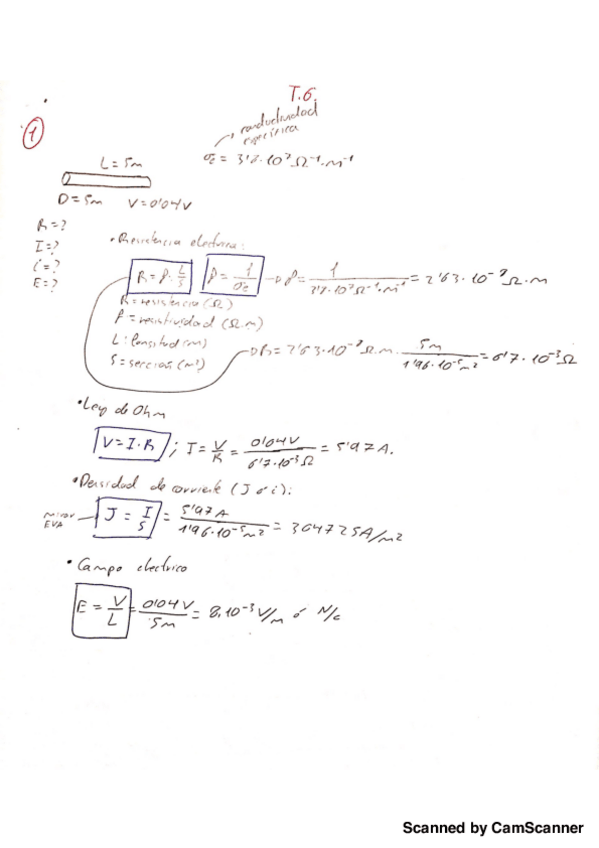 T.6.
1
conductividad
específica
σc = 3'8·10⁷ Ω⁻¹·m⁻¹
L = 5m
D = 5m V = 0'04V
R = ?
I = ?
i = ?
E = ?
• Resistencia eléctrica:
R = ρ · L/S ρ = 1/σc → ρ = 1/(3'8·10⁷ Ω⁻¹·m⁻¹) = 2'63 · 10⁻⁸ Ω·m
R = resistencia (Ω)
ρ = resistividad (Ω·m)
L: longitud (m)
S = sección (m²)
→ R = 2'63·10⁻⁸ Ω·m · 5m/(1'96·10⁻⁵ m²) = 6'7 · 10⁻³ Ω
• Ley de Ohm
V = I·R ; I = V/R = 0'04V/(6'7·10⁻³ Ω) = 5'97 A.
• Densidad de corriente (J o i):
EVA
J = I/S = 5'97A/(1'96·10⁻⁵ m²) = 304725 A/m²
• Campo electrico
E = V/L = 0'04V/5m = 8·10⁻³ V/m ó N/c
Scanned by CamScanner